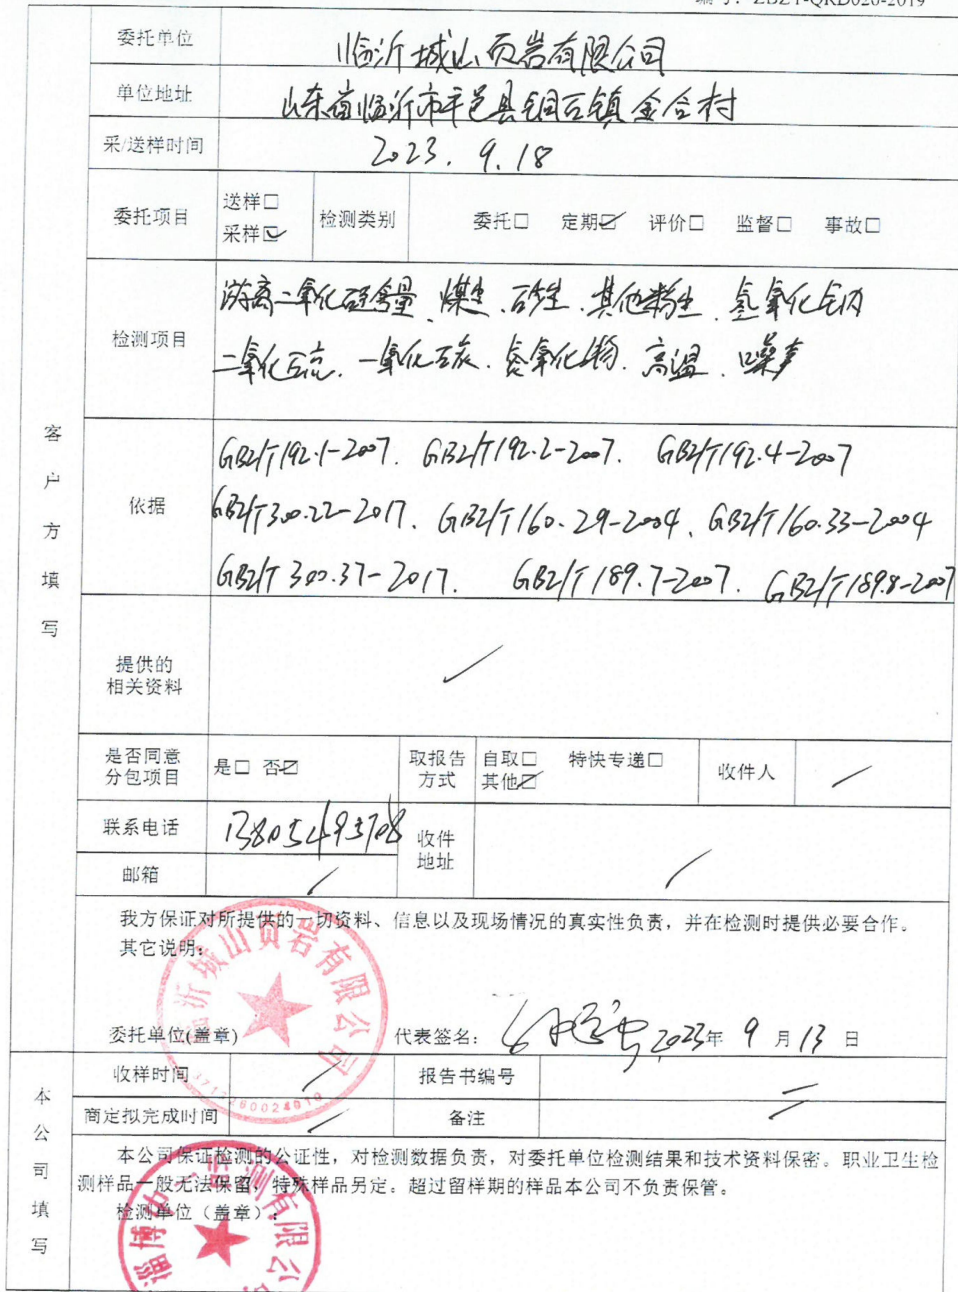 编号：ZBZY-QRD020-2019
委托单位 临沂城山页岩有限公司
单位地址 山东省临沂市平邑县铜石镇金合村
采/送样时间 2023.9.18
委托项目 送样□ 采样☑ 检测类别 委托□ 定期☑ 评价□ 监督□ 事故□
检测项目
游离二氧化硅含量、煤尘、矽尘、其他粉尘、氢氧化钠
二氧化硫、一氧化碳、氮氧化物、高温、噪声
客户方填写
依据
GBZ/T192.1-2007、GBZ/T192.2-2007、GBZ/T192.4-2007
GBZ/T300.22-2017、GBZ/T160.29-2004、GBZ/T160.33-2004
GBZ/T300.37-2017、GBZ/T189.7-2007、GBZ/T189.8-2007
提供的
相关资料
是否同意
分包项目 是□ 否☑ 取报告
方式 自取□ 特快专递□
其他☑ 收件人
联系电话 13805493708 收件
地址
邮箱
我方保证对所提供的一切资料、信息以及现场情况的真实性负责，并在检测时提供必要合作。
其它说明：
临沂城山页岩有限公司
委托单位(盖章) 代表签名： 2023年 9 月 13 日
本公司填写
收样时间 报告书编号
商定拟完成时间 备注
本公司保证检测的公证性，对检测数据负责，对委托单位检测结果和技术资料保密。职业卫生检
测样品一般无法保留，特殊样品另定。超过留样期的样品本公司不负责保管。
检测单位（盖章）：